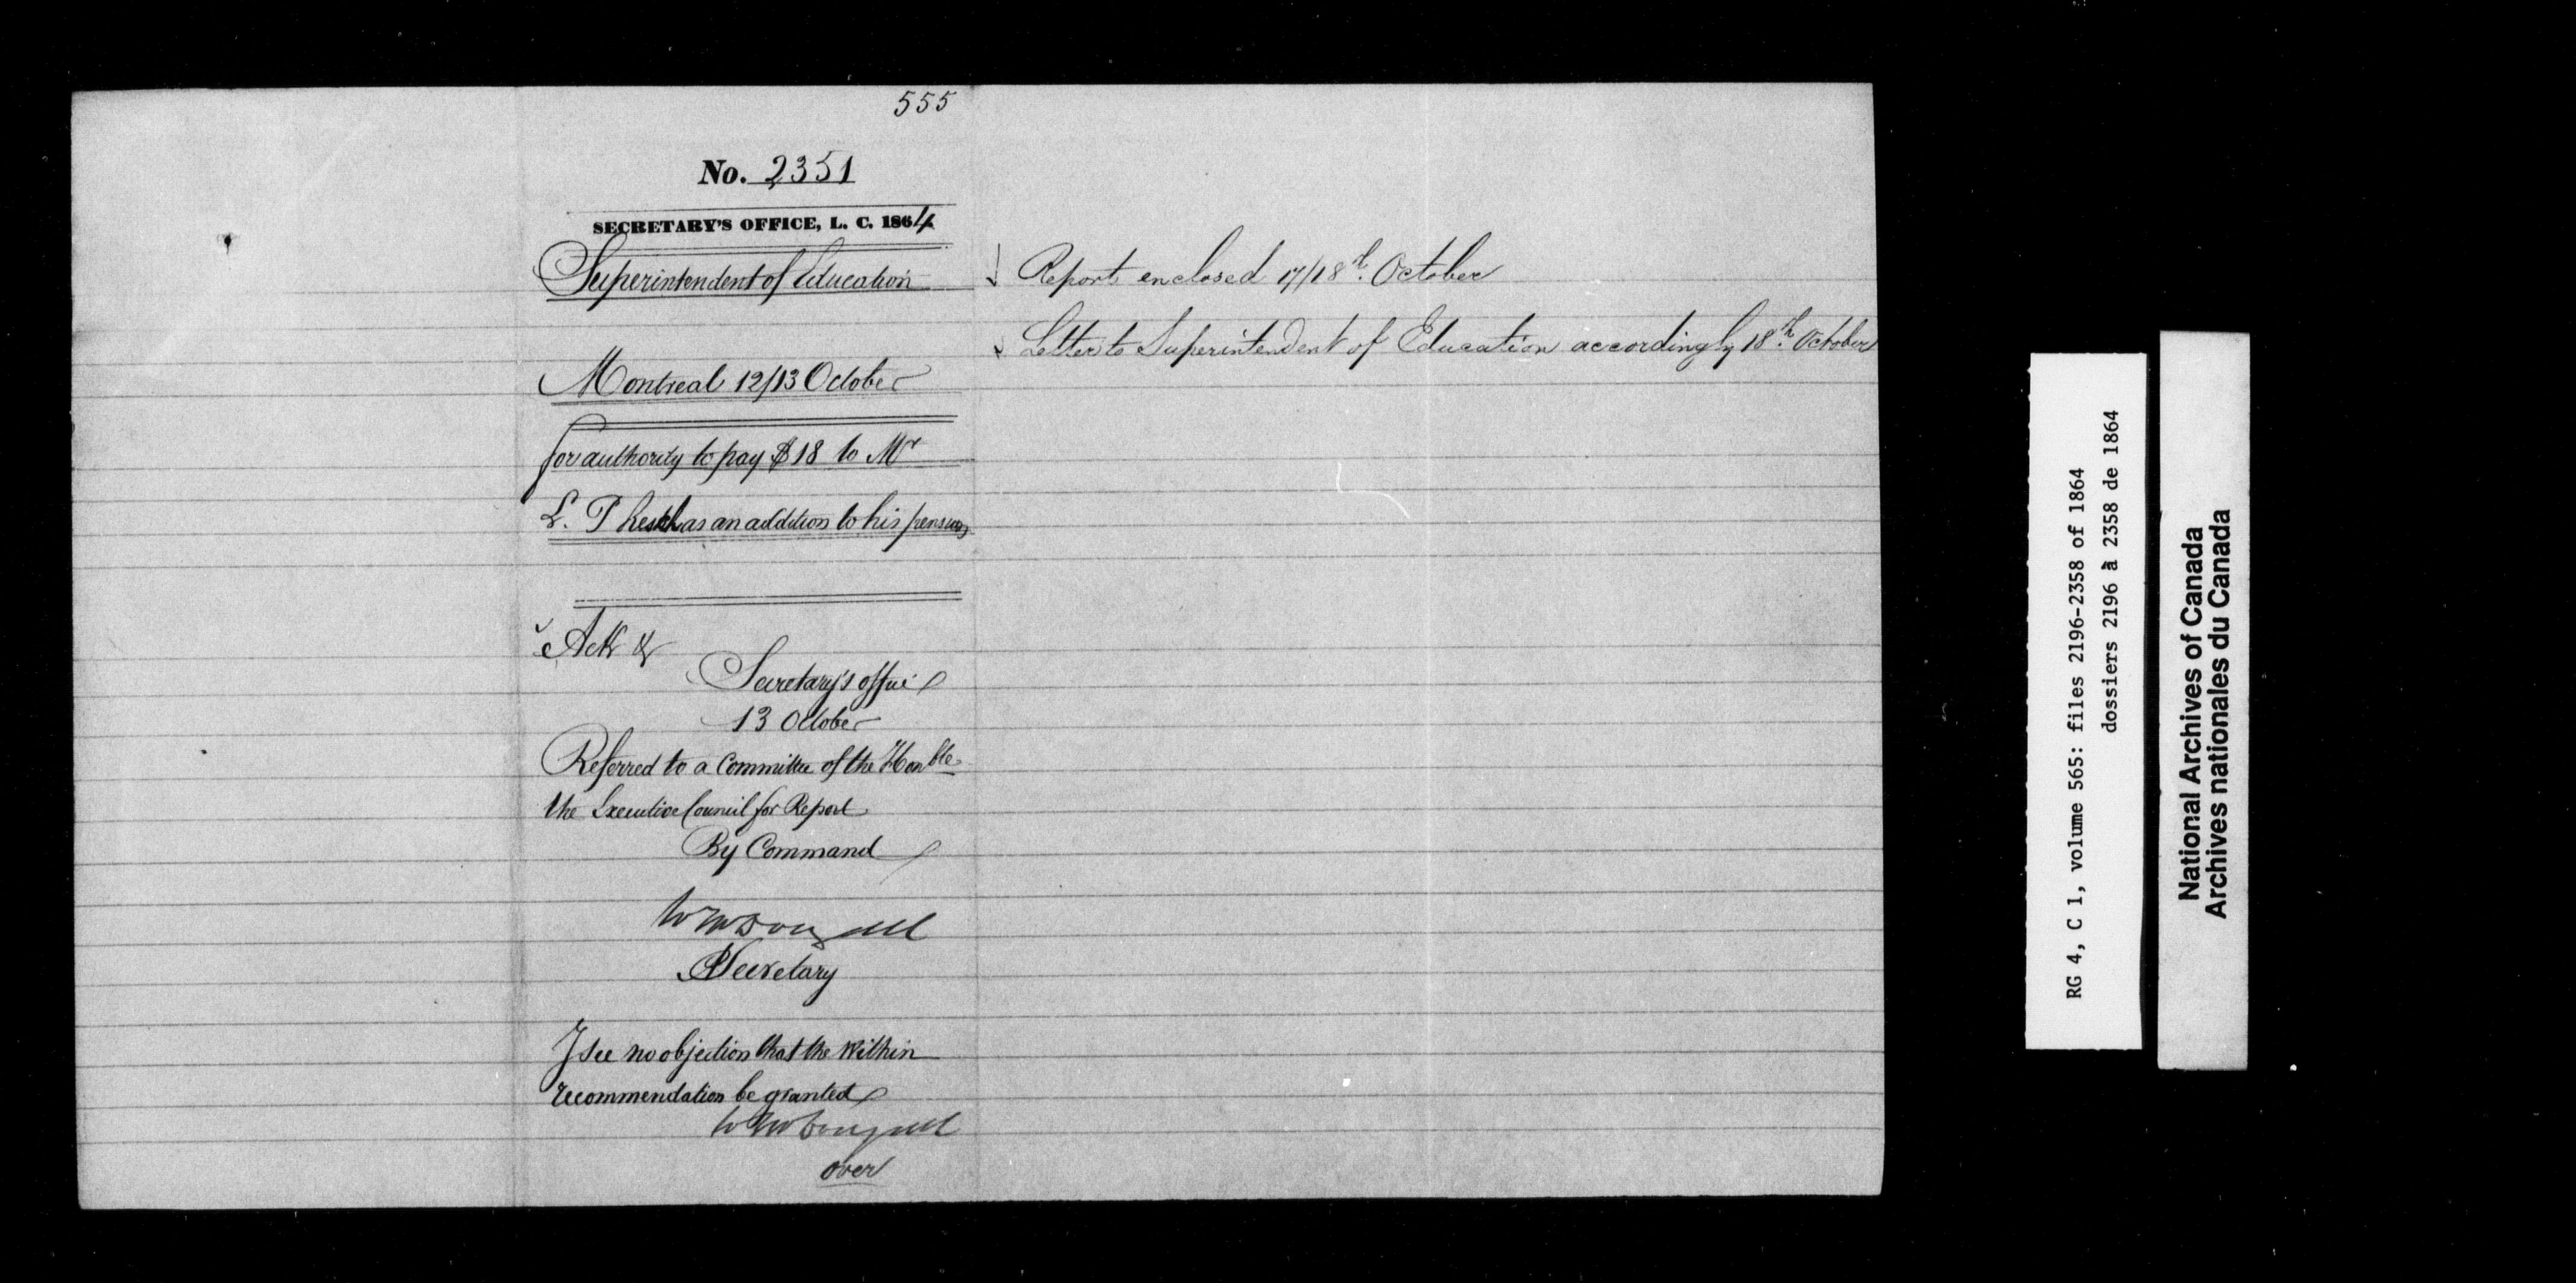 555
No. 2351
SECRETARY'S OFFICE, L. C. 1864
Superintendent of Education
Montreal 12/13 October
for authority to pay $18 to Mr
L. P as an addition to his pension
Ack &
Secretary's office
13 October
Referred to a Committee of the Honble
the Executive Council for Report
By Command
W McDougall
Secretary
I see no objection that the within
recommendation be granted
W McDougall
over
Report enclosed 17/18th. October
Letter to Superintendent of Education accordingly 18th. October
RG 4, C 1, volume 565: files 2196-2358 of 1864
dossiers 2196 à 2358 de 1864
National Archives of Canada
Archives nationales du Canada